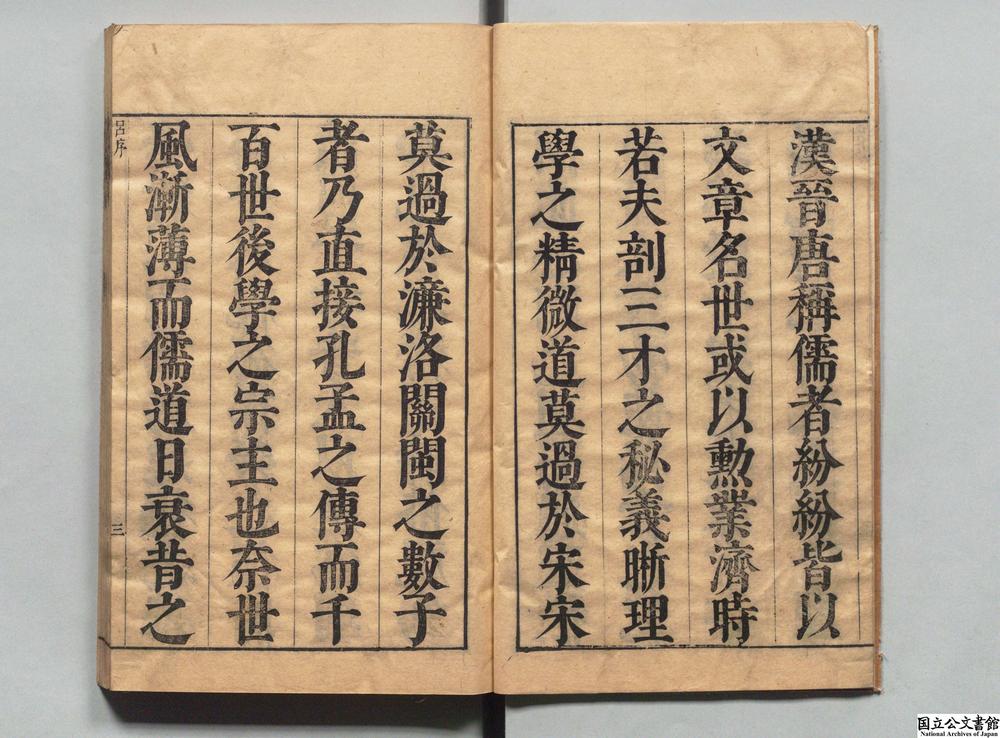 漢晉唐稱儒者紛紛皆以
文章名世或以勲業濟時
若夫剖三才之秘義晣理
學之精微道莫過於宋宋
莫過於濂洛關閩之數子
者乃直接孔孟之傳而千
百世後學之宗主也奈世
風漸薄而儒道日衰昔之
呂序
三
国立公文書館
National Archives of Japan